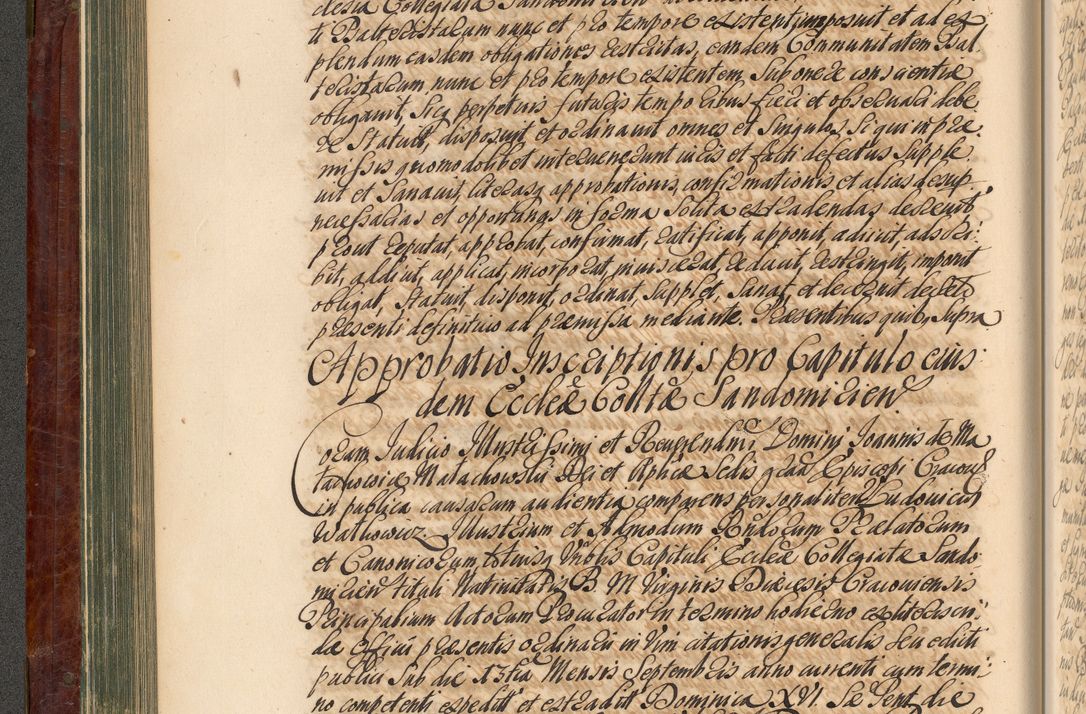 clesia Collegiata Sandomirien
ti Psalteristarum nunc et pro tempore existenti imposuit et ad ex
plendum easdem obligationes restrictas, eandem Communitatem Psal
teristarum nunc et pro tempore existentem, sub onere conscientiæ
obligavit, Sicq perpetuis futuris temporibus fieri et observari debe
re Statuit, disposuit, et ordinavit omnes et Singulos Si qui in præ:
missis quomodolibet intervenerunt iuris et facti defectus Supple
vit et Sanavit, literasq approbationis, confirmationis et alias desup
necessarias et opportunas in forma Solita extradendas decrevit
prout reputat, approbat, confirmat, ratificat, apponit, adiicit, adscri:
bit, addicit, applicat, incorporat, inviscerat, redauit, restringit, imponit
obligat, Statuit, disponit, ordinat, Supplet, Sanat, et decernit decreto
præsenti definitivo ad præmissa mediante. Præsentibus quib, Supra
Approbatio Inscriptionis pro Capitulo eius:
dem Eccleæ Collitæ Sandomirien
Coram Iudicio Illustrissimi et Reuerendmi Domini Ioannis de Ma
łachowice Małachowski Dei et Aplicæ Sedis gratia Episcopi Cracouis
in publica causarum audientia comparens personaliter Ludovicus
Watkowicz. Illustrium et Admodum Rndorum Prælatorum
et Canonicorum, totiusq Vnblis Capituli Eccleæ Collegiatæ Sando
mirien tituli Natiuitatis B M Virginis Diæcesis Cracouiensis
Principalium Actorum Procurator in termino hodierno ex literis cri:
dæ Officii præsentis ordinarii in vim citationis generalis Seu edicti
publici Sub die 13tia Mensis Septembris anno currenti cum termi:
no competenti expedit et extradit Dominica XVI Præsent die